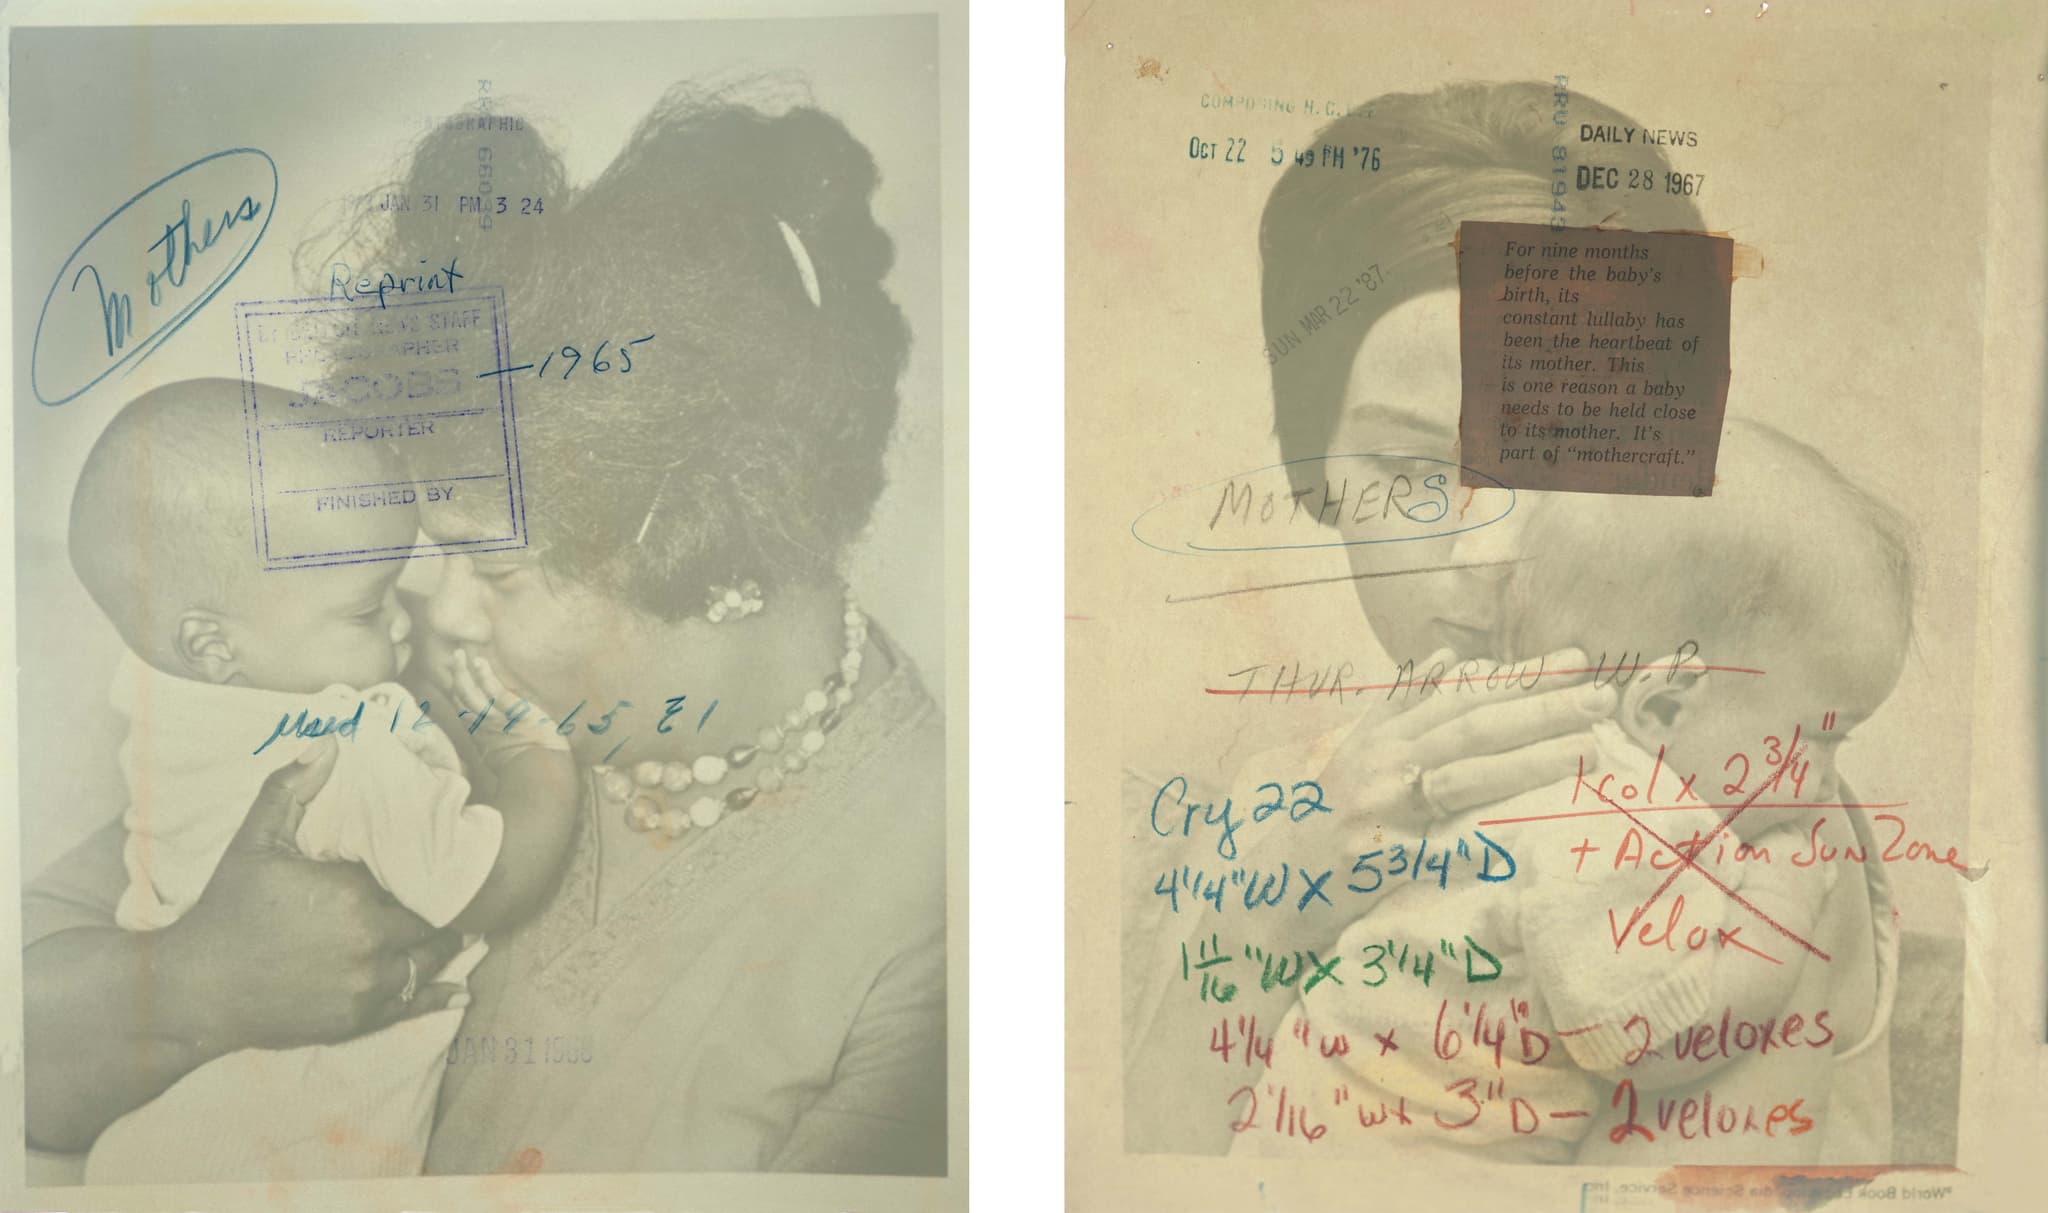 Mothers
RRU 66039
PHOTOGRAPHIC
JAN 31 PM 3 24
Reprint
NEWS STAFF
PHOTOGRAPHER
JACOBS
—1965
REPORTER
FINISHED BY
Used 12-19-65, E1
JAN 31
COMPOSING
OCT 22 5 49 PM '76
RRU 81943
DAILY NEWS
DEC 28 1967
SUN MAR 22 '87
For nine months
before the baby's
birth, its
constant lullaby has
been the heartbeat of
its mother. This
is one reason a baby
needs to be held close
to its mother. It's
part of “mothercraft.”
MOTHERS
THUR. ARROW W.P.
1 col x 2 3/4"
+ Action Sun Zone
Velox
Cry 22
4 1/4" W X 5 3/4" D
1 11/16" W X 3 1/4" D
4 1/4" w x 6 1/4" D — 2 veloxes
2 1/16" w x 3" D — 2 veloxes
World Book Science Service, Inc.